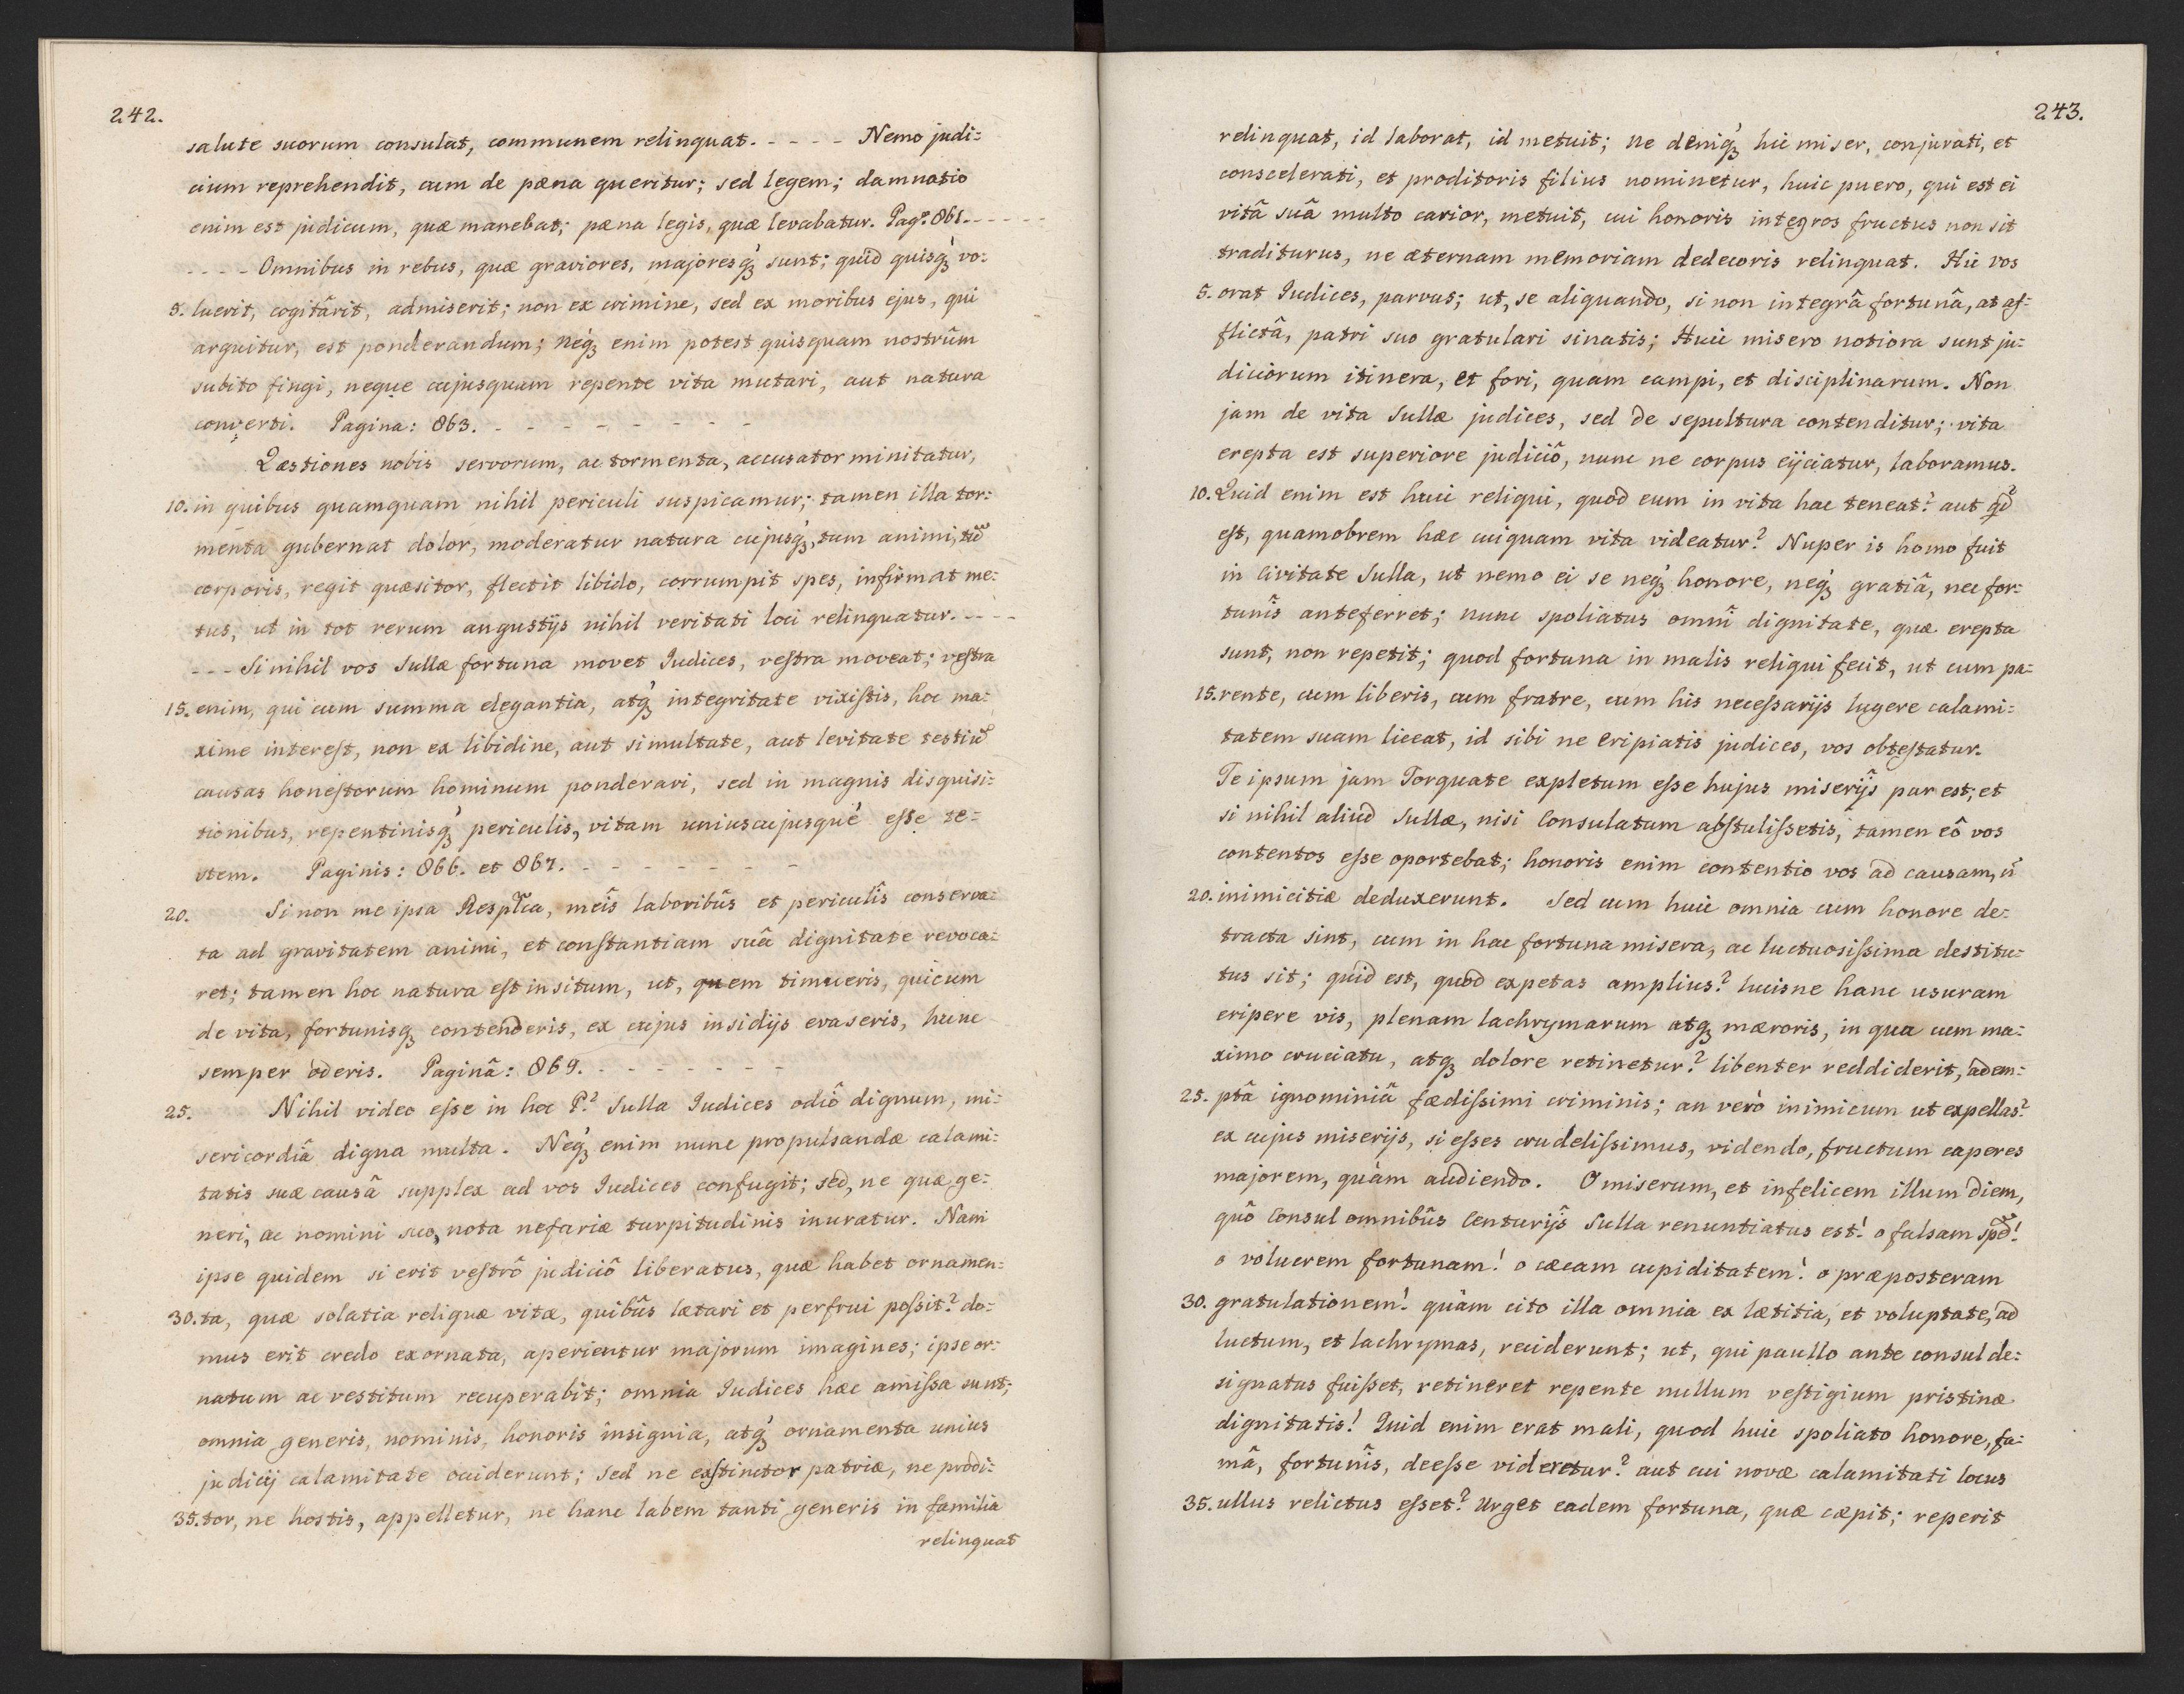 242.
salute suorum consulat, communem relinquat. - - - - Nemo judi:
cium reprehendit, cum de pæna queritur; sed legem; damnatio
enim est judicum, quæ manebat; pæna legis, quæ levabatur. Pag. 861. - - - - -
- - - - Omnibus in rebus, quæ graviores, majoresq́ꝫ sunt; quid quisq́ꝫ vo:
5. luerit, cogitârit, admiserit; non ex crimine, sed ex moribus ejus, qui
arguitur, est ponderandum; neq́ꝫ enim potest quisquam nostrûm
subito fingi, neque cujusquam repente vita mutari, aut natura
converti. Pagina: 863. - - - - - - - -
Quæstiones nobis servorum, ac tormenta, accusator minitatur,
10. in quibus quamquam nihil periculi suspicamur; tamen illa tor:
menta gubernat dolor, moderatur natura cujusq́ꝫ, tum animi, tũ
corporis, regit quæsitor, flectit libido, corrumpit spes, infirmat me:
tus, ut in tot rerum angustijs nihil veritati loci relinquatur. - - - -
- - - Si nihil vos Sullæ fortuna movet Iudices, veſtra moveat; veſtra
15. enim, qui cum summa elegantia, atq́ꝫ integritate vixiſtis, hoc ma:
xime intereſt, non ex libidine, aut simultate, aut levitate testiũ
causas honeſtorum hominum ponderari, sed in magnis disquisi:
tionibus, repentinisq́ꝫ periculis, vitam uniuscujusquè eſſe te:
stem. Paginis: 866. et 867. - - - - - - -
20. Si non me ipsa Resplca, meîs laboribûs et periculîs conserva:
ta ad gravitatem animi, et conſtantiam suâ dignitate revoca:
ret; tamen hoc natura eſt insitum, ut, quem timueris, quicum
de vita, fortunisqꝫ contenderis, ex cujus insidijs evaseris, hunc
semper oderis. Paginâ: 869. - - - - - - -
25. Nihil video eſſe in hoc P.? Sulla Iudices odiô dignum, mi:
sericordiâ digna multa. Neq́ꝫ enim nunc propulsandæ calami:
tatis suæ causâ supplex ad vos Iudices confugit; sed, ne quæ ge:
neri, ac nomini suo, nota nefariæ turpitudinis inuratur. Nam
ipse quidem si erit veſtrô judiciô liberatus, quæ habet ornamen:
30. ta, quæ solatia reliquæ vitæ, quibûs lætari et perfrui poſsit? do:
mus erit credo exornata, aperientur majorum imagines; ipse or:
natum ac vestitum recuperabit; omnia Iudices hæc amiſsa sunt;
omnia generis, nominis, honoris insignia, atq́ꝫ ornamenta unius
judicij calamitate occiderunt; sed ne exſtinctor patriæ, ne prodi:
35. tor, ne hostis, appelletur, ne hanc labem tanti generis in familia
relinquat
243.
relinquat, id laborat, id metuit; ne deniq́ꝫ hic miser, conjurati, et
conscelerati, et proditoris filius nominetur, huic puero, qui est ei
vitâ suâ multo carior, metuit, cui honoris integros fructus non sit
traditurus, ne æternam memoriam dedecoris relinquat. Hic vos
5. orat Iudices, parvus; ut, se aliquando, si non integrâ fortunâ, at af:
flictâ, patri suo gratulari sinatis; Huic misero notiora sunt ju:
diciorum itinera, et fori, quam campi, et disciplinarum. Non
jam de vita Sullæ judices, sed de sepultura contenditur; vita
erepta est superiore judiciô, nunc ne corpus eijciatur, laboramus.
10. Quid enim est huic reliqui, quod eum in vita hac teneat? aut qd?
eſt, quamobrem hæc cuiquam vita videatur? Nuper is homo fuit
in Civitate Sulla, ut nemo ei se neq́ꝫ honore, neq́ꝫ gratiâ, nec for:
tunîs anteferret; nunc spoliatus omnî dignitate, quæ erepta
sunt, non repetit; quod fortuna in malis reliqui fecit, ut cum pa:
15. rente, cum liberis, cum fratre, cum his neceſsarijs lugere calami:
tatem suam liceat, id sibi ne eripiatis judices, vos obteſtatur.
Te ipsum jam Torquate expletum eſse hujus miserijs par est; et
si nihil aliud Sullæ, nisi Consulatum abſtuliſsetis, tamen eô vos
contentos eſse oportebat; honoris enim contentio vos ad causam, ñ
20. inimicitiæ deduxerunt. Sed cum huic omnia cum honore de:
tracta sint, cum in hac fortuna misera, ac luctuosiſsima destitu:
tus sit; quid est, quod expetas amplius? lucisne hanc usuram
eripere vis, plenam lachrymarum atqꝫ mæroris, in qua cum ma:
ximo cruciatu, atqꝫ dolore retinetur? libenter reddiderit, adem:
25. ptâ ignominiâ fædiſsimi criminis; an verò inimicum ut expellas?
ex cujus miserijs, si eſses crudeliſsimus, videndo, fructum caperes
majorem, quàm audiendo. O miserum, et infelicem illum diem,
quô Consul omnibûs Centurijs Sulla renuntiatus est! o falsam spẽ!
o volucrem fortunam! o cæcam cupiditatem! o præposteram
30. gratulationem! quàm cito illa omnia ex lætitia, et voluptate, ad
luctum, et lachrymas, reciderunt; ut, qui paullo ante consul de:
signatus fuiſset, retineret repente nullum veſtigium pristinæ
dignitatis! Quid enim erat mali, quod huic spoliato honore, fa:
mâ, fortunîs, deeſse videretur? aut cui novæ calamitati locus
35. ullus relictus eſset? Urget eadem fortuna, quæ cæpit; reperit